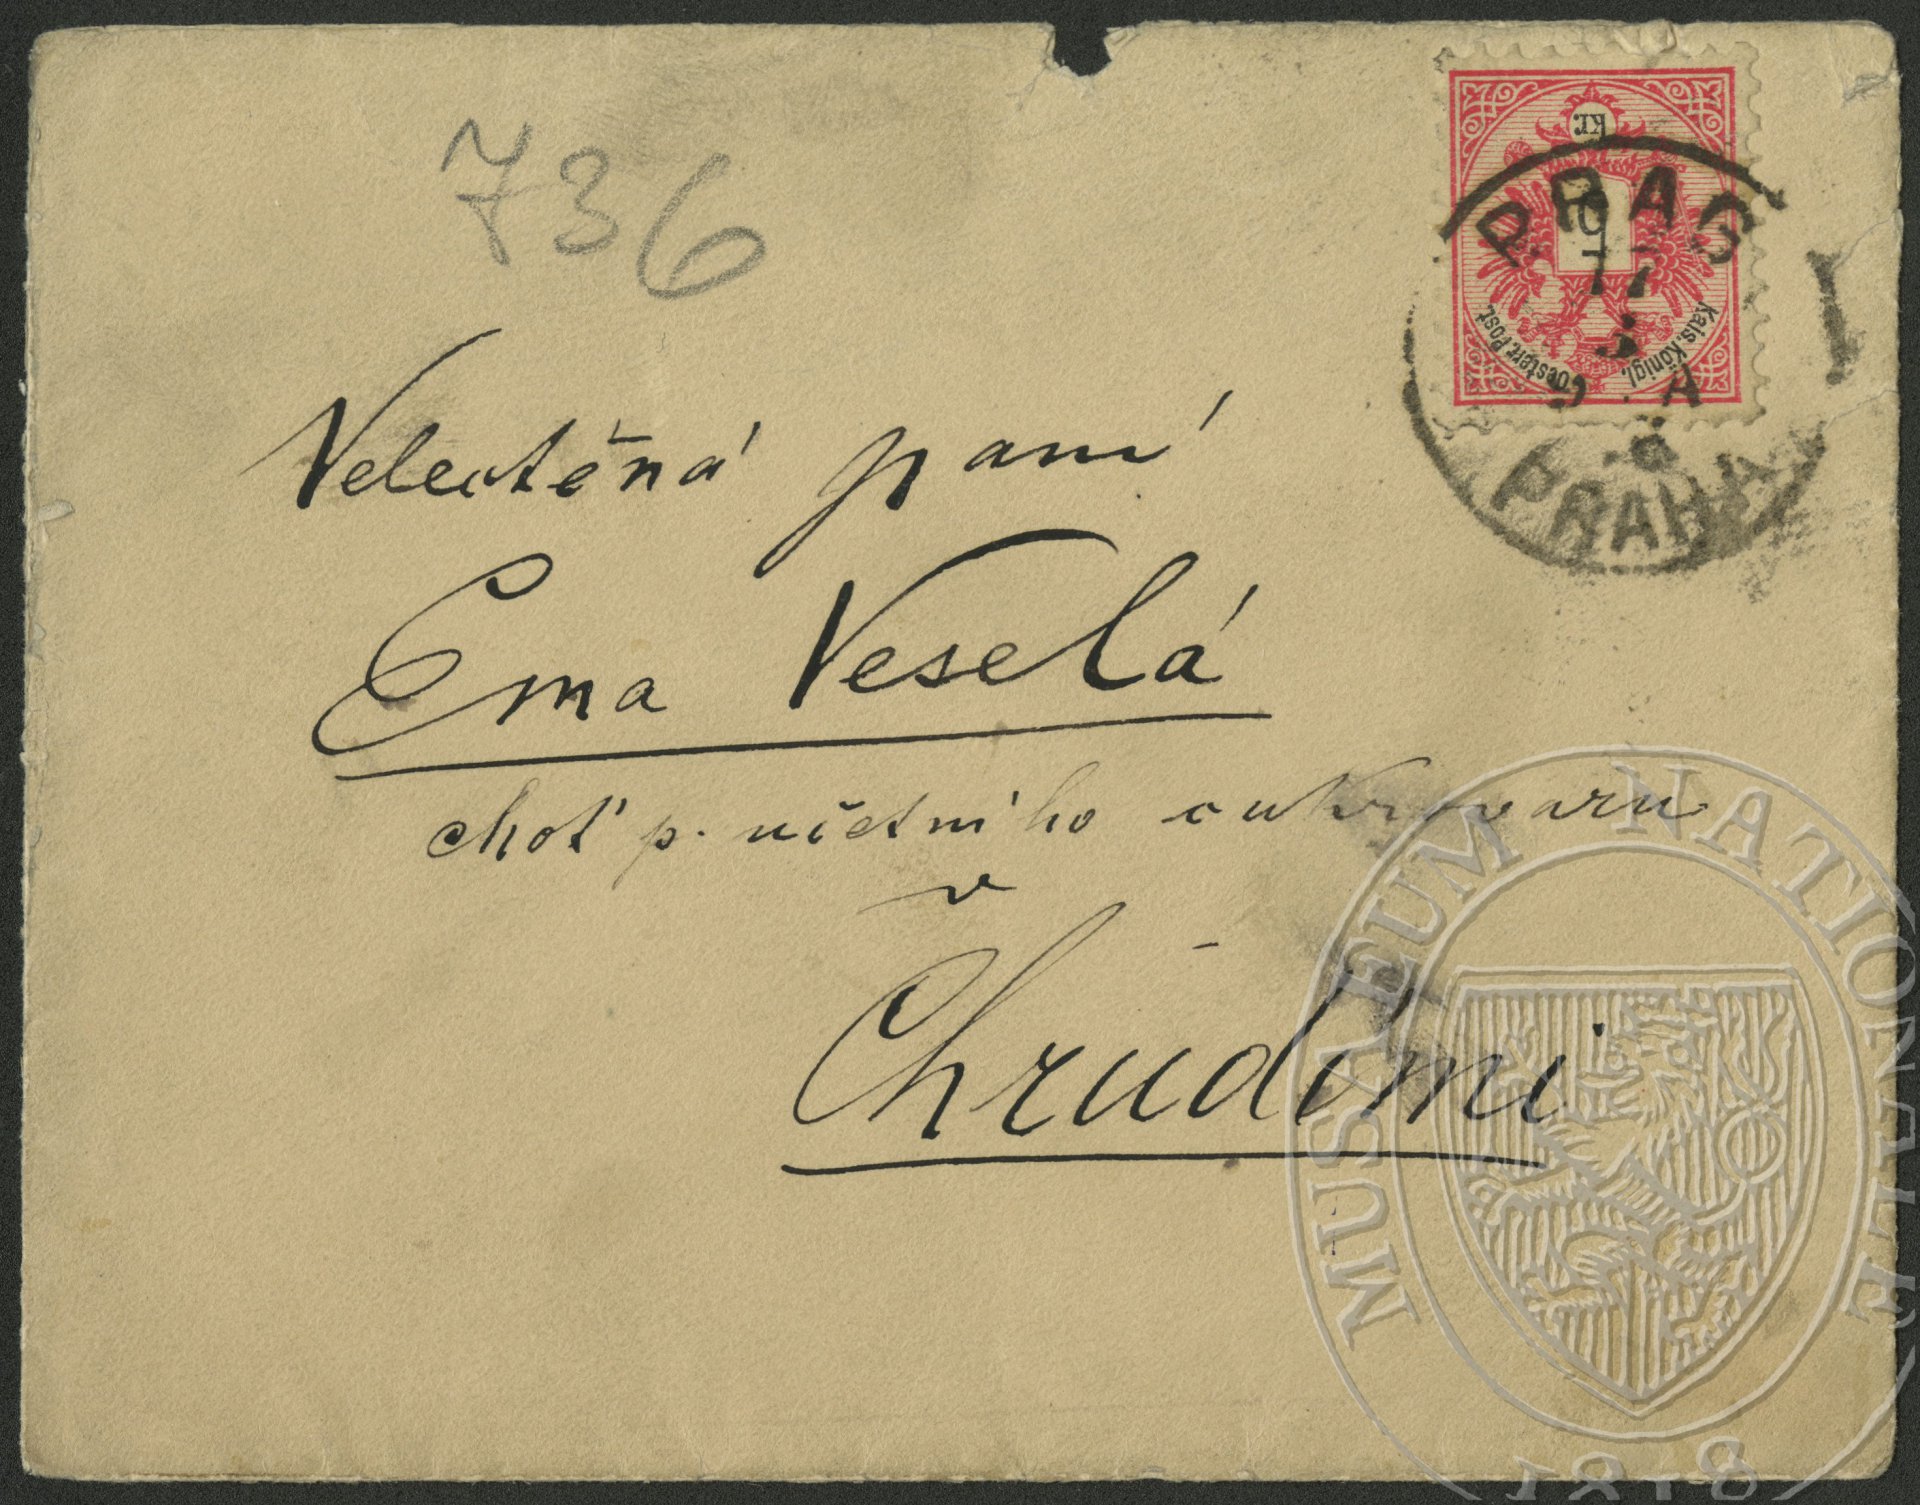 736
kr.
5
Kais. Königl. Oesterr. Post.
PRAG
17
3
9. A
PRAHA
I
Velectěná paní
Ema Veselá
choť p. účetního cukrovaru
v
Chrudimi
MUSAEUM NATIONALE
1818